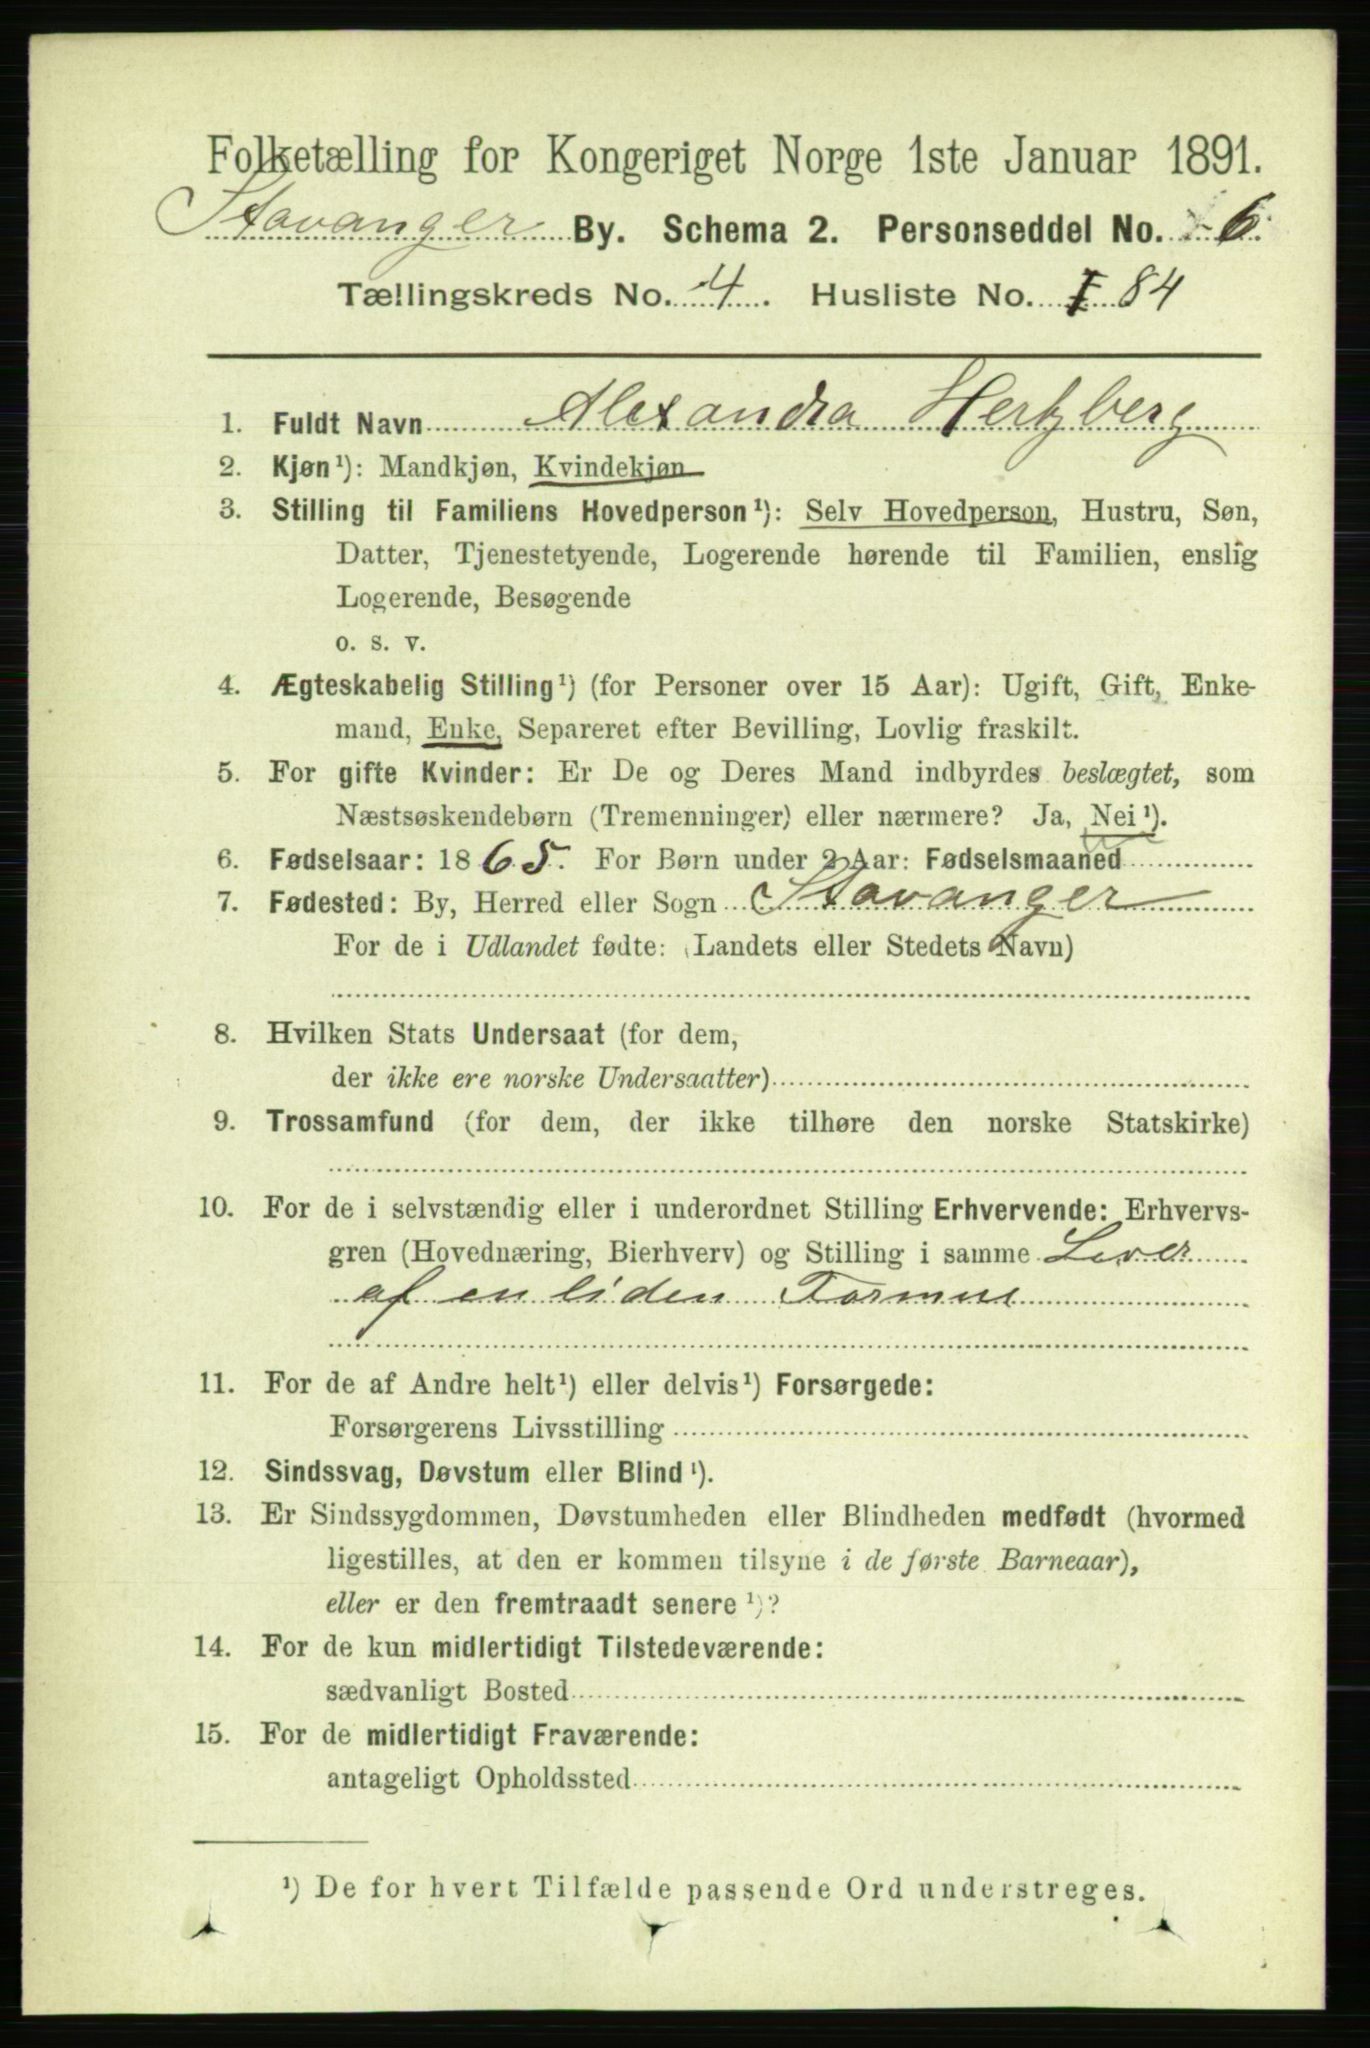 Folketælling for Kongeriget Norge 1ste Januar 1891.
Stavanger By. Schema 2. Personseddel No. 6.
Tællingskreds No. 4. Husliste No. 84
1. Fuldt Navn Alexandra Hertzberg
2. Kjøn¹): Mandkjøn, Kvindekjøn
3. Stilling til Familiens Hovedperson¹): Selv Hovedperson, Hustru, Søn,
Datter, Tjenestetyende, Logerende hørende til Familien, enslig
Logerende, Besøgende
o. s. v.
4. Ægteskabelig Stilling¹) (for Personer over 15 Aar): Ugift, Gift, Enke-
mand, Enke, Separeret efter Bevilling, Lovlig fraskilt.
5. For gifte Kvinder: Er De og Deres Mand indbyrdes beslægtet, som
Næstsøskendebørn (Tremenninger) eller nærmere? Ja, Nei¹).
6. Fødselsaar: 1865. For Børn under 2 Aar: Fødselsmaaned
7. Fødested: By, Herred eller Sogn Stavanger
For de i Udlandet fødte: (Landets eller Stedets Navn)
8. Hvilken Stats Undersaat (for dem,
der ikke ere norske Undersaatter)
9. Trossamfund (for dem, der ikke tilhøre den norske Statskirke)
10. For de i selvstændig eller i underordnet Stilling Erhvervende: Erhvervs-
gren (Hovednæring, Bierhverv) og Stilling i samme Lever
af en liden Formue
11. For de af Andre helt¹) eller delvis¹) Forsørgede:
Forsørgerens Livsstilling
12. Sindssvag, Døvstum eller Blind¹).
13. Er Sindssygdommen, Døvstumheden eller Blindheden medfødt (hvormed
ligestilles, at den er kommen tilsyne i de første Barneaar),
eller er den fremtraadt senere¹)?
14. For de kun midlertidigt Tilstedeværende:
sædvanligt Bosted
15. For de midlertidigt Fraværende:
antageligt Opholdssted
¹) De for hvert Tilfælde passende Ord understreges.